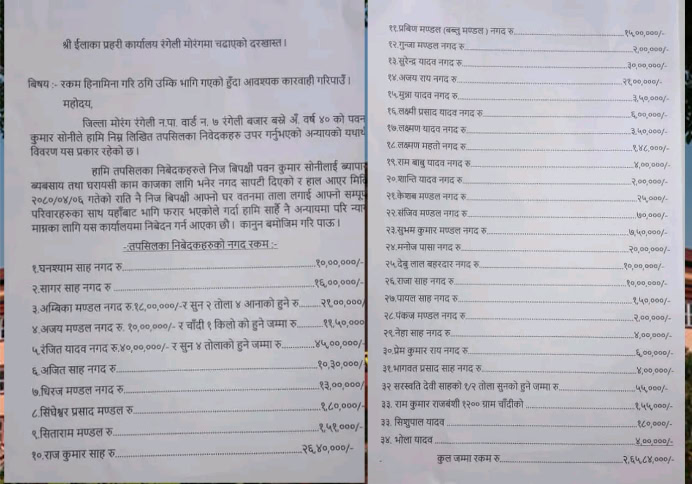 श्री ईलाका प्रहरी कार्यालय रंगेली मोरंगमा चढाएको दरखास्त ।
बिषय :- रकम हिनामिना गरि ठगि उम्कि भागि गएको हुँदा आवश्यक कारवाही गरिपाउँ ।
महोदय,
जिल्ला मोरंग रंगेली न.पा. वार्ड न. ७ रंगेली बजार बस्ने अँ. वर्ष ४० को पवन
कुमार सोनीले हामि निम्न लिखित तपसिलका निवेदकहरु उपर गर्नुभएको अन्यायको यथार्थ
विवरण यस प्रकार रहेको छ ।
हामि तपसिलका निबेदकहरुले निज बिपक्षी पवन कुमार सोनीलाई ब्यापार
ब्यबसाय तथा घरायसी काम काजका लागि भनेर नगद सापटी दिएको र हाल आएर मिति
२०८०/०४/०६ गतेको राति नै निज बिपक्षी आफ्नो घर वतनमा ताला लगाई आफ्नो सम्पूर्ण
परिवारहरुका साथ यहाँबाट भागि फरार भएकोले गर्दा हामि साह्रै नै अन्यायमा परि न्याय
माग्नका लागि यस कार्यालयमा निबेदन गर्न आएका छौ । कानुन बमोजिम गरि पाऊ ।
-:तपसिलका निबेदकहरुको नगद रकम :-
१.घनश्याम साह नगद रु............१०,००,०००/-
२.सागर साह नगद रु............१६,००,०००/-
३.अम्बिका मण्डल नगद रु.१८,००,०००/-र सुन २ तोला ४ आनाको हुने रु.......२१,००,०००/
४.अजय मण्डल नगद रु. १०,००,०००/- र चाँदी १ किलो को हुने जम्मा रु.......११,५०,०००
५.रंजित यादव नगद रु.४०,००,०००/- र सुन ४ तोलाको हुने जम्मा रु.......४५,००,०००/-
६.अजित साह नगद रु............१०,३०,०००/-
७.धिरज मण्डल नगद रु............१३,००,०००/-
८.सिंघेश्वर प्रसाद मण्डल रु............१,८०,०००/-
९.सिताराम मण्डल रु............१,५१,०००/-
१०.राज कुमार साह रु............२६,४०,०००/-
११.प्रबिण मण्डल (बब्लु मण्डल ) नगद रु............१५,००,०००/-
१२.गुन्जा मण्डल नगद रु............२,००,०००/-
१३.सुरेन्द्र यादव नगद रु............३०,००,०००/-
१४.अजय राय नगद रु............२१,००,०००/-
१५.मुन्ना यादव नगद रु............३,५०,०००/-
१६.लक्ष्मी प्रसाद यादव नगद रु............६,००,०००/-
१७.लक्ष्मण यादव नगद रु............३,५०,०००/-
१८.लक्ष्मण महतो नगद रु............१,४८,०००/-
१९.राम बाबु यादव नगद रु............४,००,०००/-
२०.शान्ति यादव नगद रु............२,००,०००/-
२१.केशब मण्डल नगद रु............२५,०००/-
२२.संजिव मण्डल नगद रु............७०,०००/-
२३.सुभम कुमार मण्डल नगद रु............७,५०,०००/-
२४.मनोज पासा नगद रु............२०,००,०००/-
२५.देबु लाल बहरदार नगद रु............१०,००,०००/-
२६.राजा साह नगद रु............१०,००,०००/-
२७.पायल साह नगद रु............१,५०,०००/-
२८.पंकज मण्डल नगद रु............२,००,०००/-
२९.नेहा साह नगद रु............४,००,०००/-
३०.प्रेम कुमार राय नगद रु............६,००,०००/-
३१.भागवत प्रसाद साह नगद रु............४,००,०००/-
३२ सरस्वति देवी साहको १/२ तोला सुनको हुने जम्मा रु............५५,०००/-
३३. राम कुमार राजबंशी १२०० ग्राम चाँदीको............१,५५,०००/-
३३. सिशुपाल यादव............१८०,०००/-
३४. भोला यादव............४,००,०००/-
कुल जम्मा रकम रु............२,६५,८४,०००/-